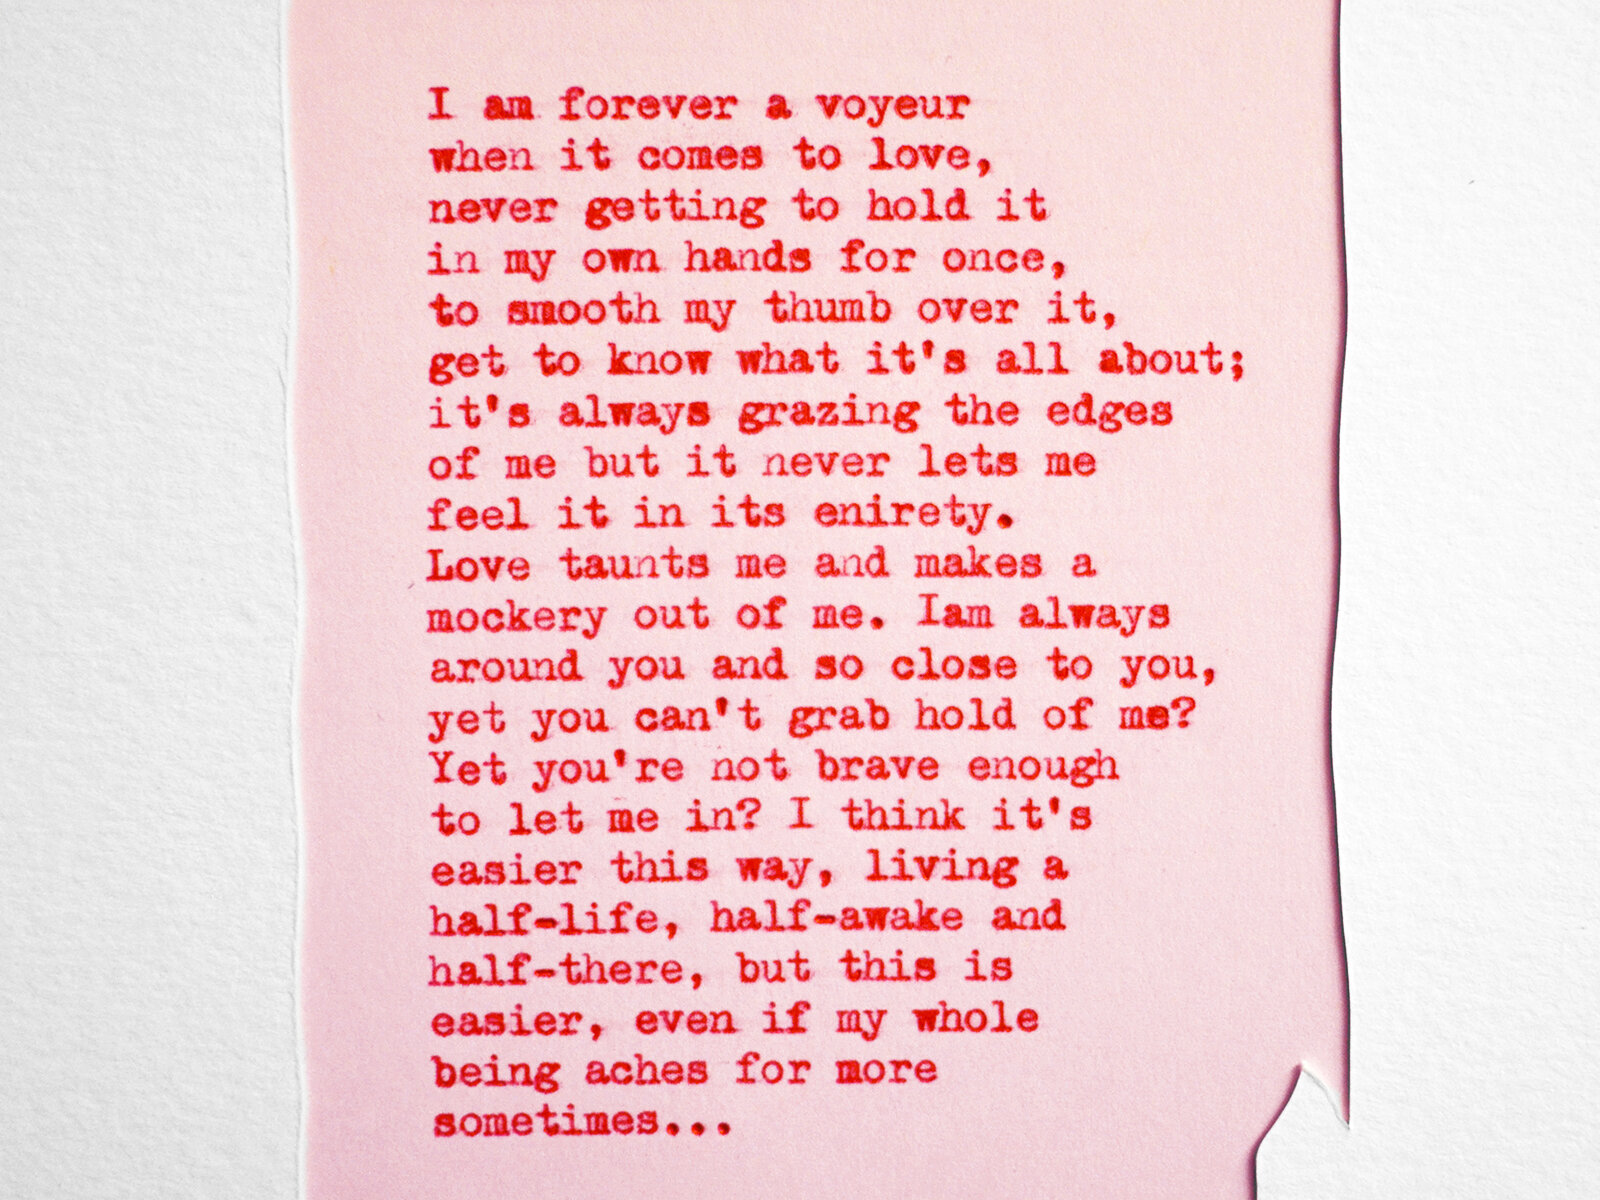 I am forever a voyeur
when it comes to love,
never getting to hold it
in my own hands for once,
to smooth my thumb over it,
get to know what it's all about;
it's always grazing the edges
of me but it never lets me
feel it in its enirety.
Love taunts me and makes a
mockery out of me. Iam always
around you and so close to you,
yet you can't grab hold of me?
Yet you're not brave enough
to let me in? I think it's
easier this way, living a
half-life, half-awake and
half-there, but this is
easier, even if my whole
being aches for more
sometimes...